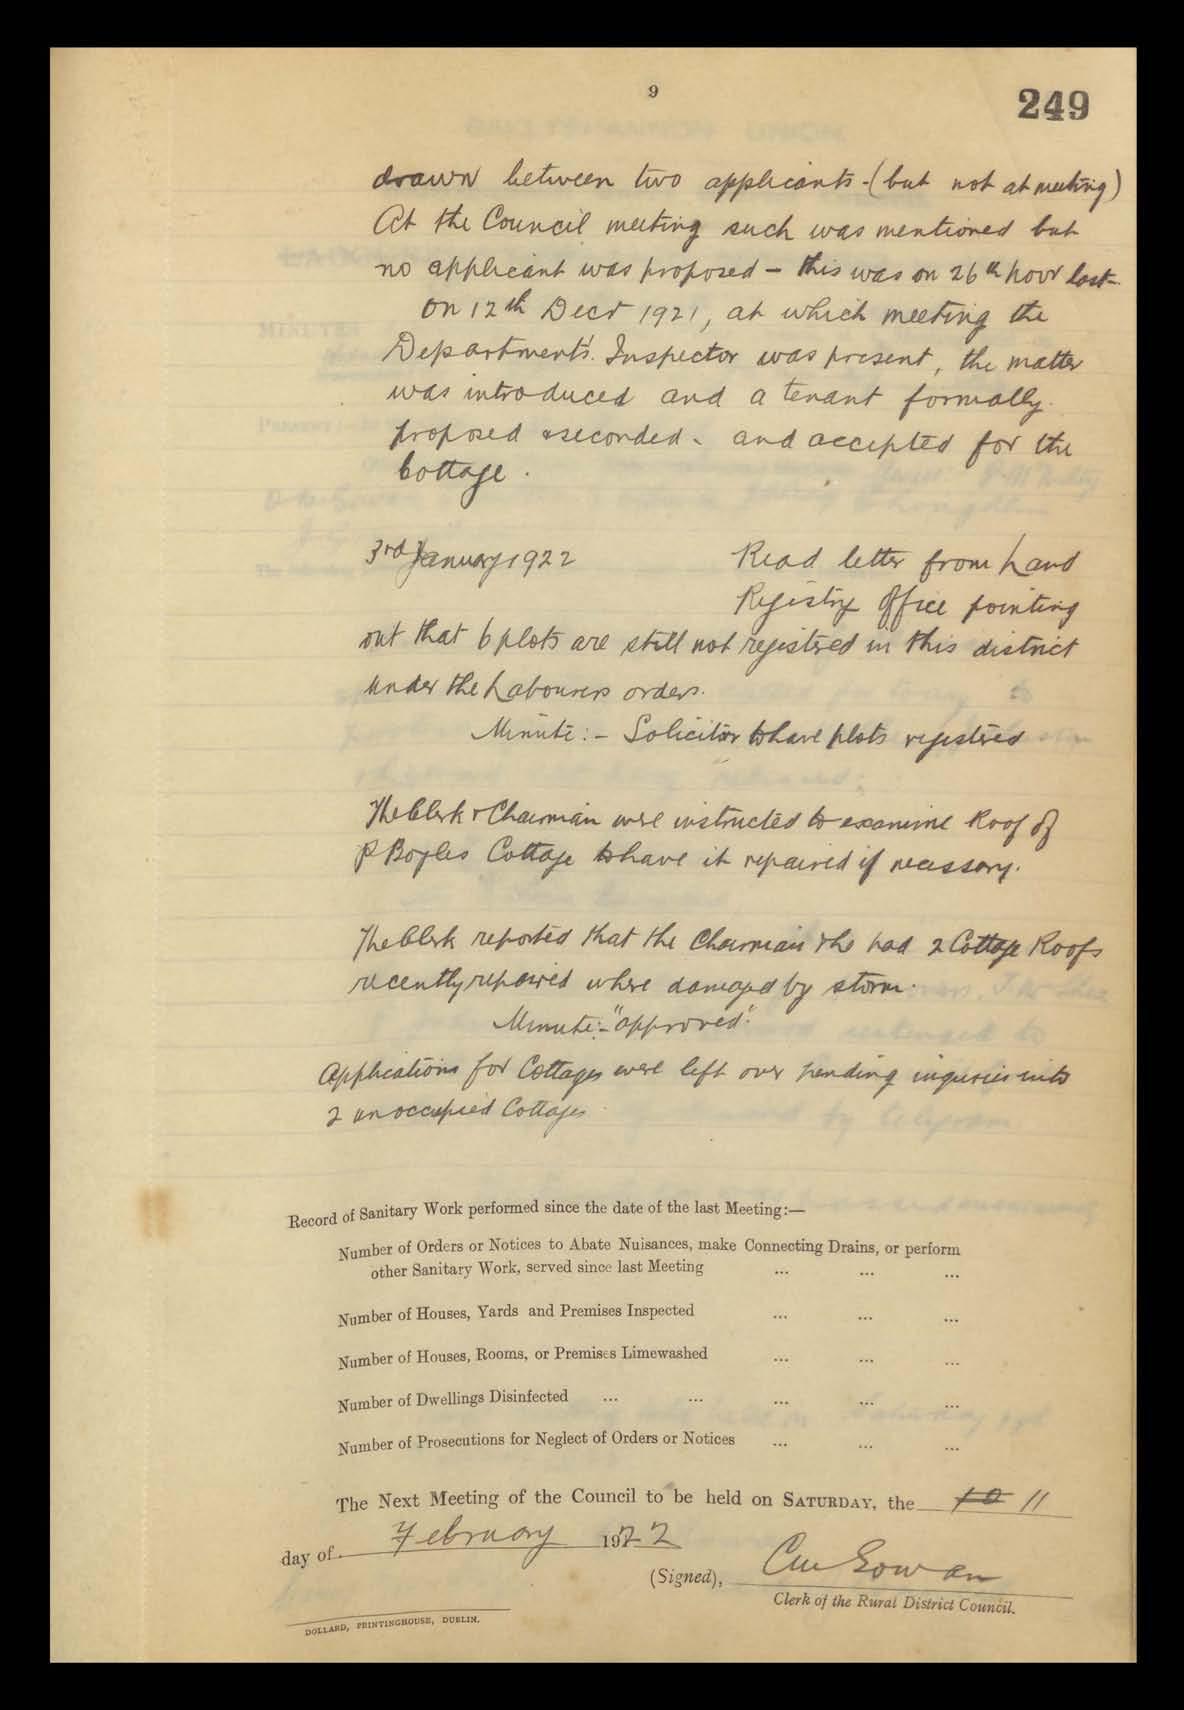 9
249
drawn between two applicants - (but not at meeting)
At the Council meeting such was mentioned but
no applicant was proposed - this was on 26th Novr last -
On 12th Decr 1921, at which meeting the
Departments' Inspector was present, the matter
was introduced and a tenant formally
proposed & seconded - and accepted for the
Cottage.
3rd January 1922
Read letter from Land
Registry Office pointing
out that 6 plots are still not registered in this district
under the Labourers orders.
Minute:- Solicitor to have plots registered
The Clerk & Chairman were instructed to examine Roof of
P Boyles Cottage to have it repaired if necessary.
The Clerk reported that the Chairman & he had 2 Cottage Roofs
recently repaired where damaged by storm.
Minute:- "approved".
Applications for Cottages were left over pending inquiries into
2 unoccupied Cottages
Record of Sanitary Work performed since the date of the last Meeting:—
Number of Orders or Notices to Abate Nuisances, make Connecting Drains, or perform
other Sanitary Work, served since last Meeting ... ... ...
Number of Houses, Yards and Premises Inspected ... ... ...
Number of Houses, Rooms, or Premises Limewashed ... ... ...
Number of Dwellings Disinfected ... ... ... ... ...
Number of Prosecutions for Neglect of Orders or Notices ... ... ...
The Next Meeting of the Council to be held on SATURDAY, the 10 11
day of February 1922
(Signed), Gowan
Clerk of the Rural District Council.
DOLLARD, PRINTINGHOUSE, DUBLIN.